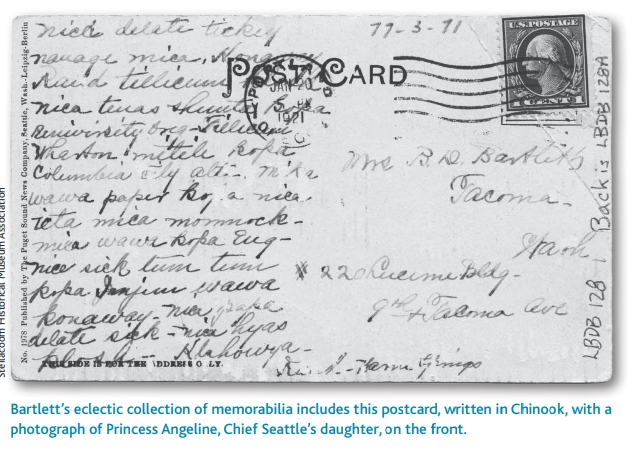 nick delate tickey
nanage mica, Konaway
Kand tillicums
nica tenas shunta kopa
University Org - Tillicum
Wharton mitlite kopa
Columbia City alti - mika
wawa paper kopa nica
icta mica mommock -
mica wawa kopa Eng -
nica sick tum tum
kopa Injiun wawa
konaway - nica papa
delate sick - nica hyas
kloshe - Klahowya -
THIS SIDE IS FOR THE ADDRESS ONLY.
No. 1978 Published by The Puget Sound News Company, Seattle, Wash.-Leipzig-Berlin
77-3-71
POST CARD
JAN 20
5 PM
1921
U.S. POSTAGE
1 CENT 1
Mrs B. D. Bartlett
Tacoma -
Wash
220 Lucerne Bldg -
9th & Tacoma Ave
Back is LBDB 128A
LBDB 128
Steilacoom Historical Museum Association
Bartlett's eclectic collection of memorabilia includes this postcard, written in Chinook, with a
photograph of Princess Angeline, Chief Seattle's daughter, on the front.